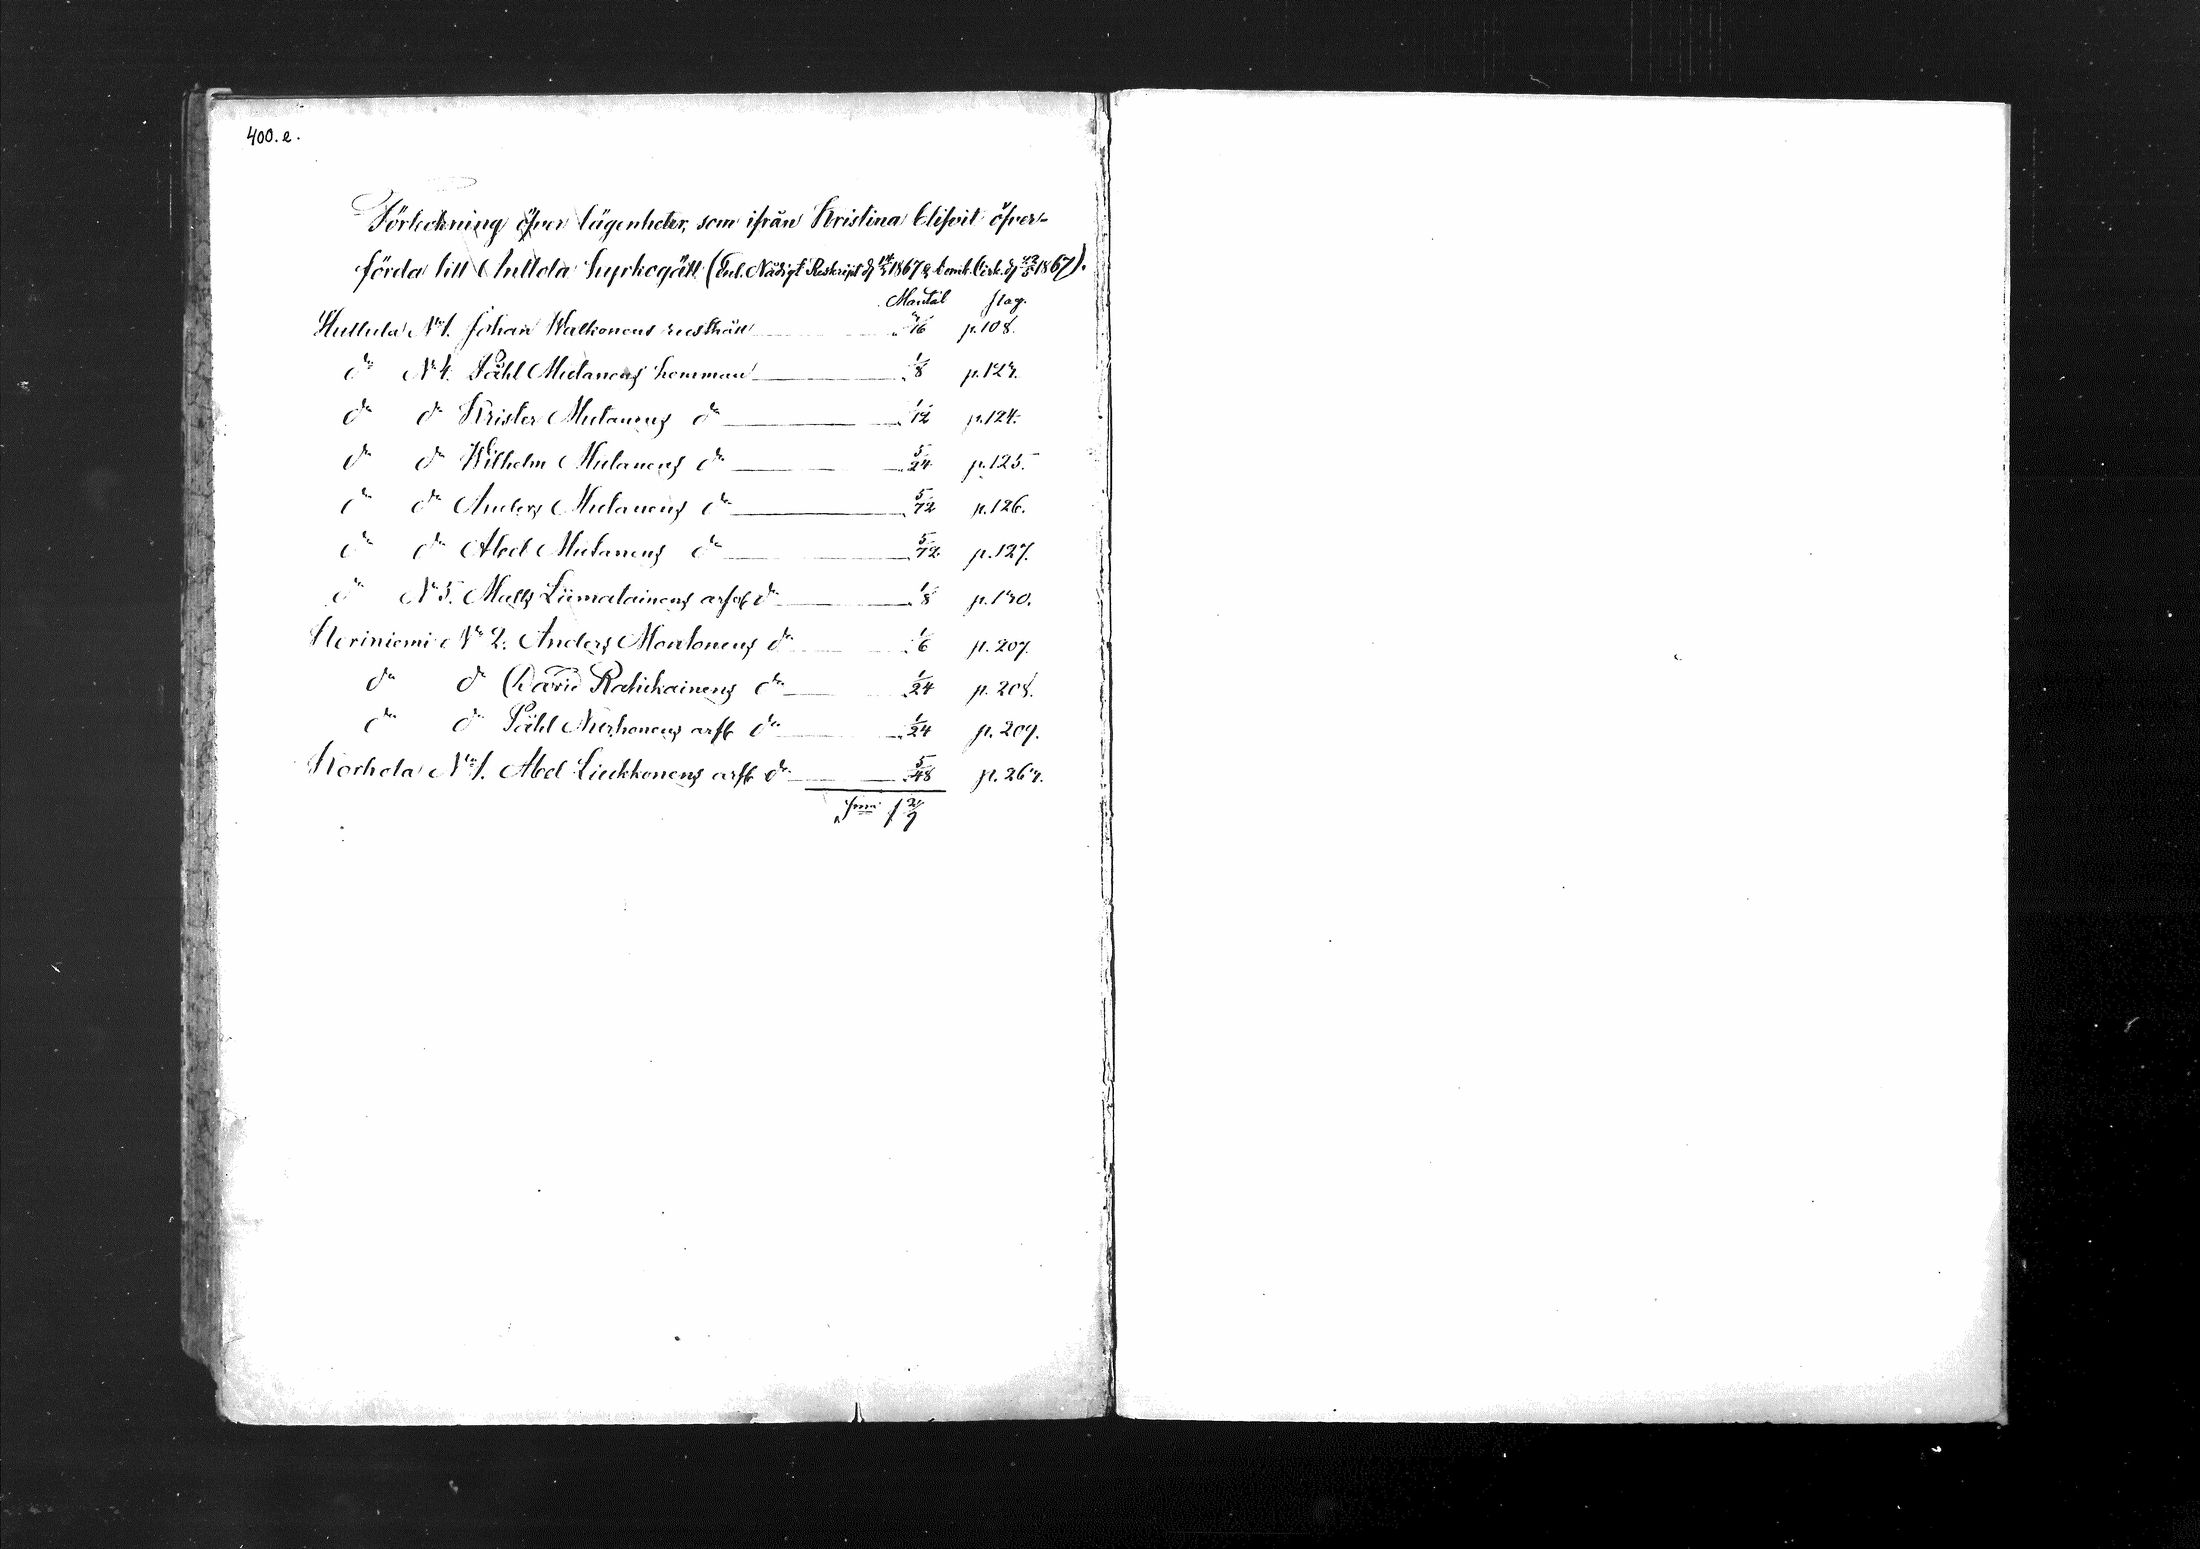 400.e.
Förteckning öfver lägenheter, som ifrån Kristina blifvit öfver-
förda till Anttola kyrkogäll (Enl. Nådigt Reskript d. 1867 & Domk. Cirk. d. 1867).
Mantal pag.
Huttula No 1. Johan Walkonens rusthåll 3/16 p. 108.
do No 4. Påhl Mutanens hemman 1/8 p. 123.
do do Krister Mutanens do 1/12 p. 124.
do do Wilhelm Mutanens do 5/24 p. 125.
do do Anders Mutanens do 5/72 p. 126.
do do Abel Mutanens do 5/72 p. 127.
do No 5. Matts Liimatainens arfvb do 1/8 p. 130.
Neriniemi No 2. Anders Montonens do 1/6 p. 207.
do do David Rahikainens do 1/24 p. 208.
do do Påhl Nurhonens arfb do 1/24 p. 209.
Korhola No 1. Abel Liukkonens arfb do 5/48 p. 263.
Sum̄a 1 2/9